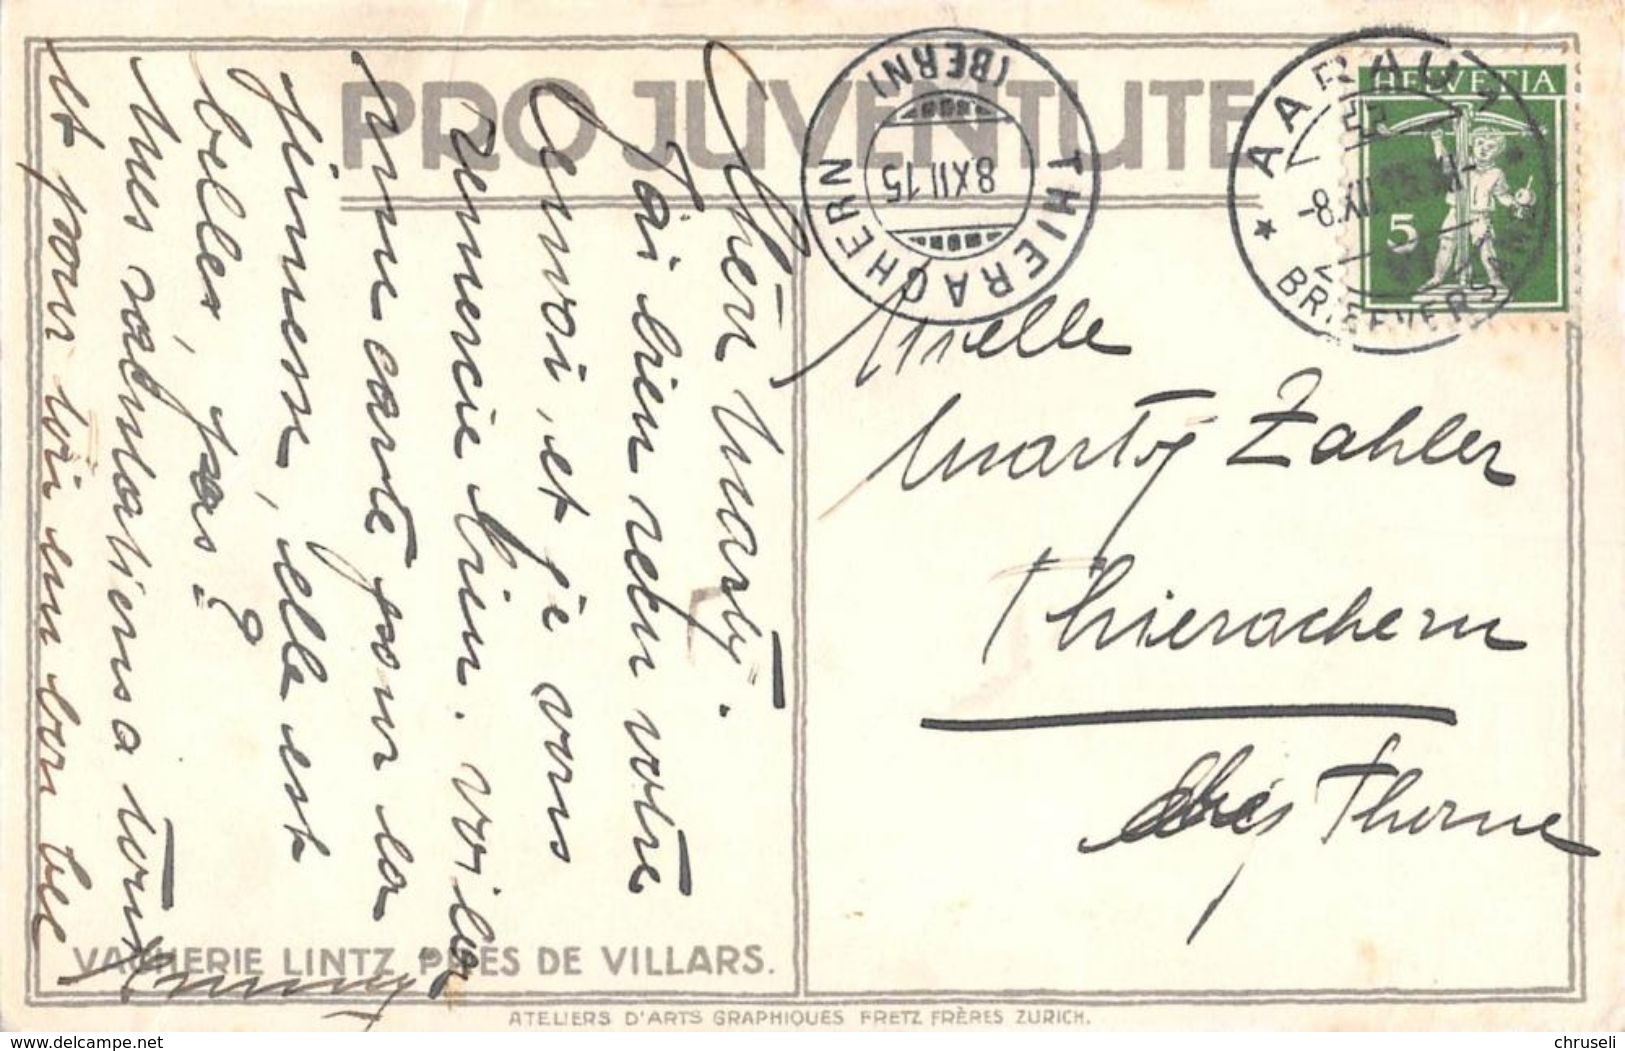 PRO JUVENTUTE
THIERACHERN
(BERN)
8 XII 15
AARAU
-8.XII
BRIEFVERSAND
HELVETIA
5
Chère Marty.
J'ai bien reçu votre
envoi, et je vous
remercie bien. voila
une carte pour la
jeunesse, elle est
belle, pas?
Mes salutations a tous
et pour toi un bon bec
Mselle
Marty Zahler
Thierachern
Thoune
VACHERIE LINTZ PRÈS DE VILLARS.
ATELIERS D'ARTS GRAPHIQUES FRETZ FRÈRES ZURICH.
www.delcampe.net
chruseli